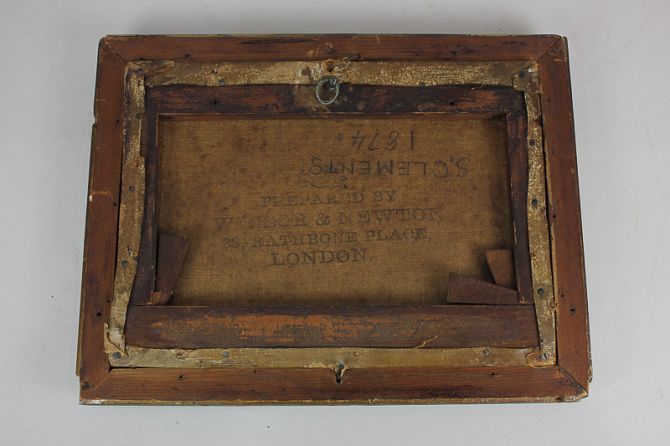 S. CLEMENTS
1874.
PREPARED BY
WINSOR & NEWTON
38, RATHBONE PLACE,
LONDON.